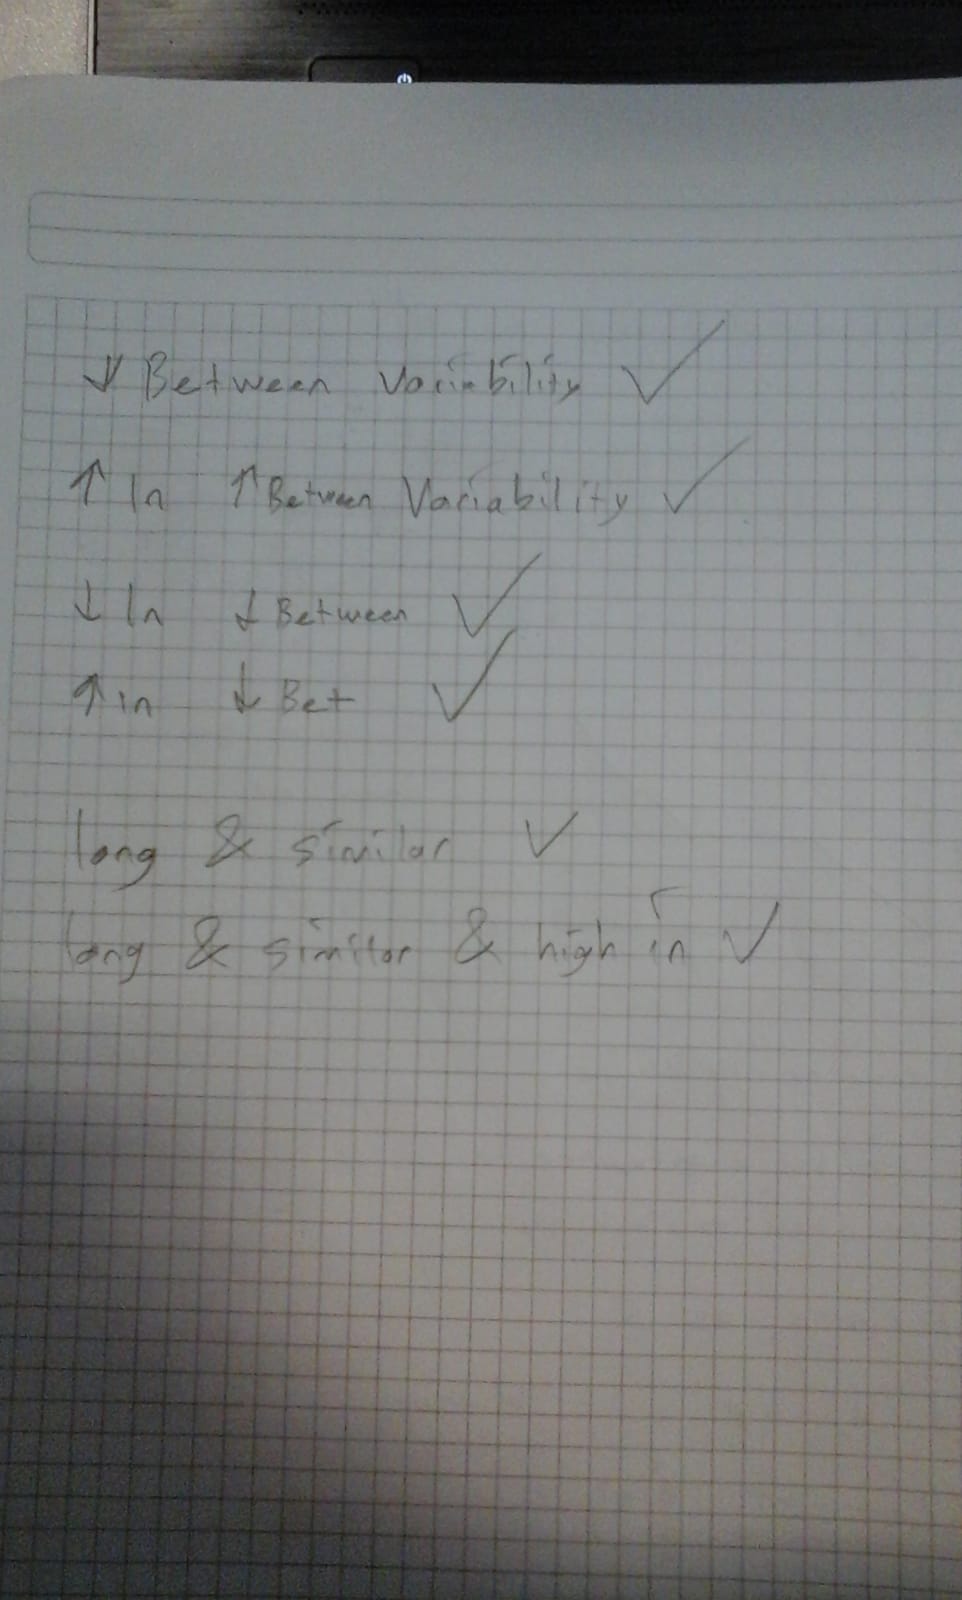 ↓ Between Variability ✓
↑ In ↑ Between Variability ✓
↓ In ↓ Between ✓
↑ in ↓ Bet ✓
long & similar ✓
long & similar & high in ✓